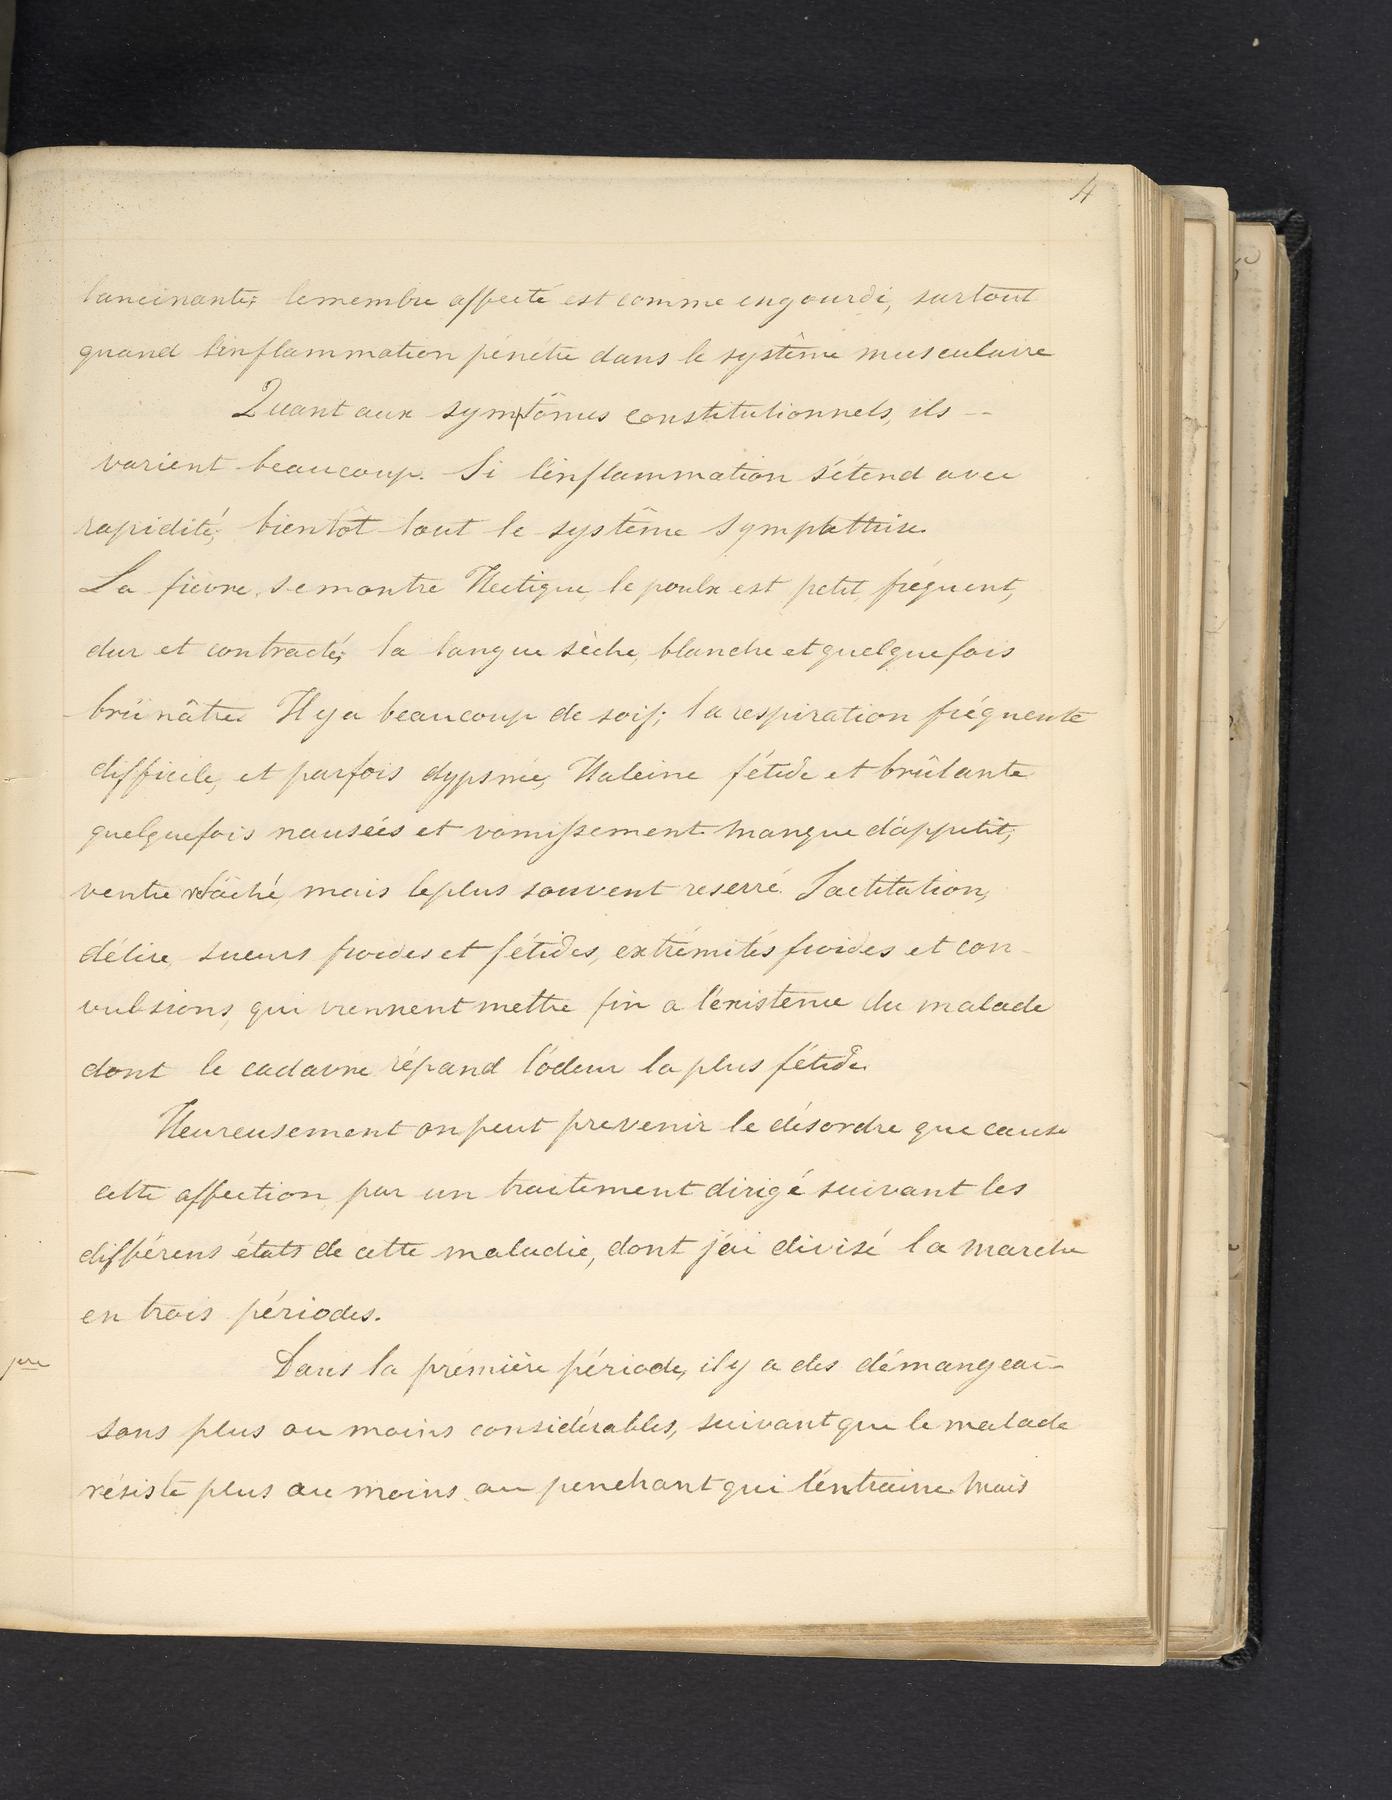 4
lancinante; le membre affecté est comme engourdi, surtout
quand l'inflammation pénètre dans le système musculaire
Quant aux symptômes constitutionnels, ils --
varient beaucoup. Si l'inflammation s'étend avec
rapidité, bientôt tout le système sympathise.
La fièvre se montre Hectique, le poulx est petit, fréquent,
dur et contracté; la langue sèche, blanche et quelquefois
brünâtre Il y a beaucoup de soif; la respiration fréquente
difficile, et parfois dypsnée, Haleine fétide et brûlante
quelquefois nausées et vomissement manque d'appetit,
ventre relâché, mais le plus souvent reserré Jactitation,
délire, sueurs froides et fétides, extrémités froides et con-
vulsions, qui viennent mettre fin a l'existence du malade
dont le cadavre répand l'odeur la plus fétide.
Heureusement on peut prevenir le désordre que cause
cette affection par un traitement dirigé suivant les
différens états de cette maladie, dont j'ai divisé la marche
en trois périodes.
Dans la prémière période, il y a des démangeai-
sons plus ou moins considérables, suivant que le malade
résiste plus ou moins au penchant qui l'entraine. Mais